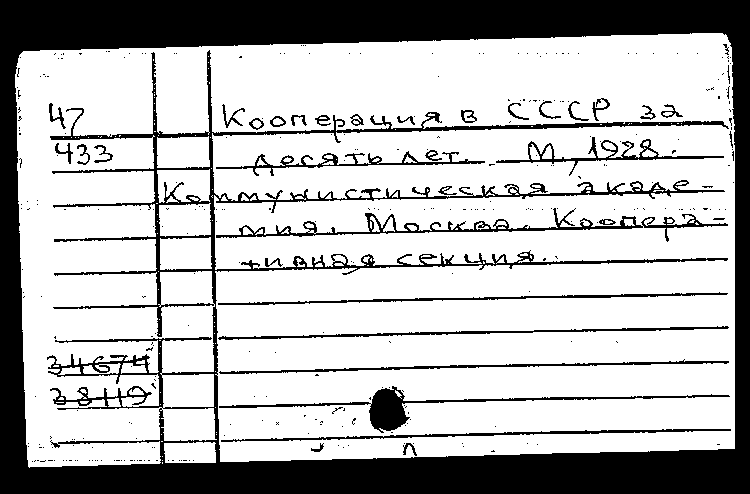 47 Кооперация в СССР за
433 десять лет. М., 1928.
Коммунистическая акаде-
мия. Москва. Коопера-
тивная секция.
34674
38119